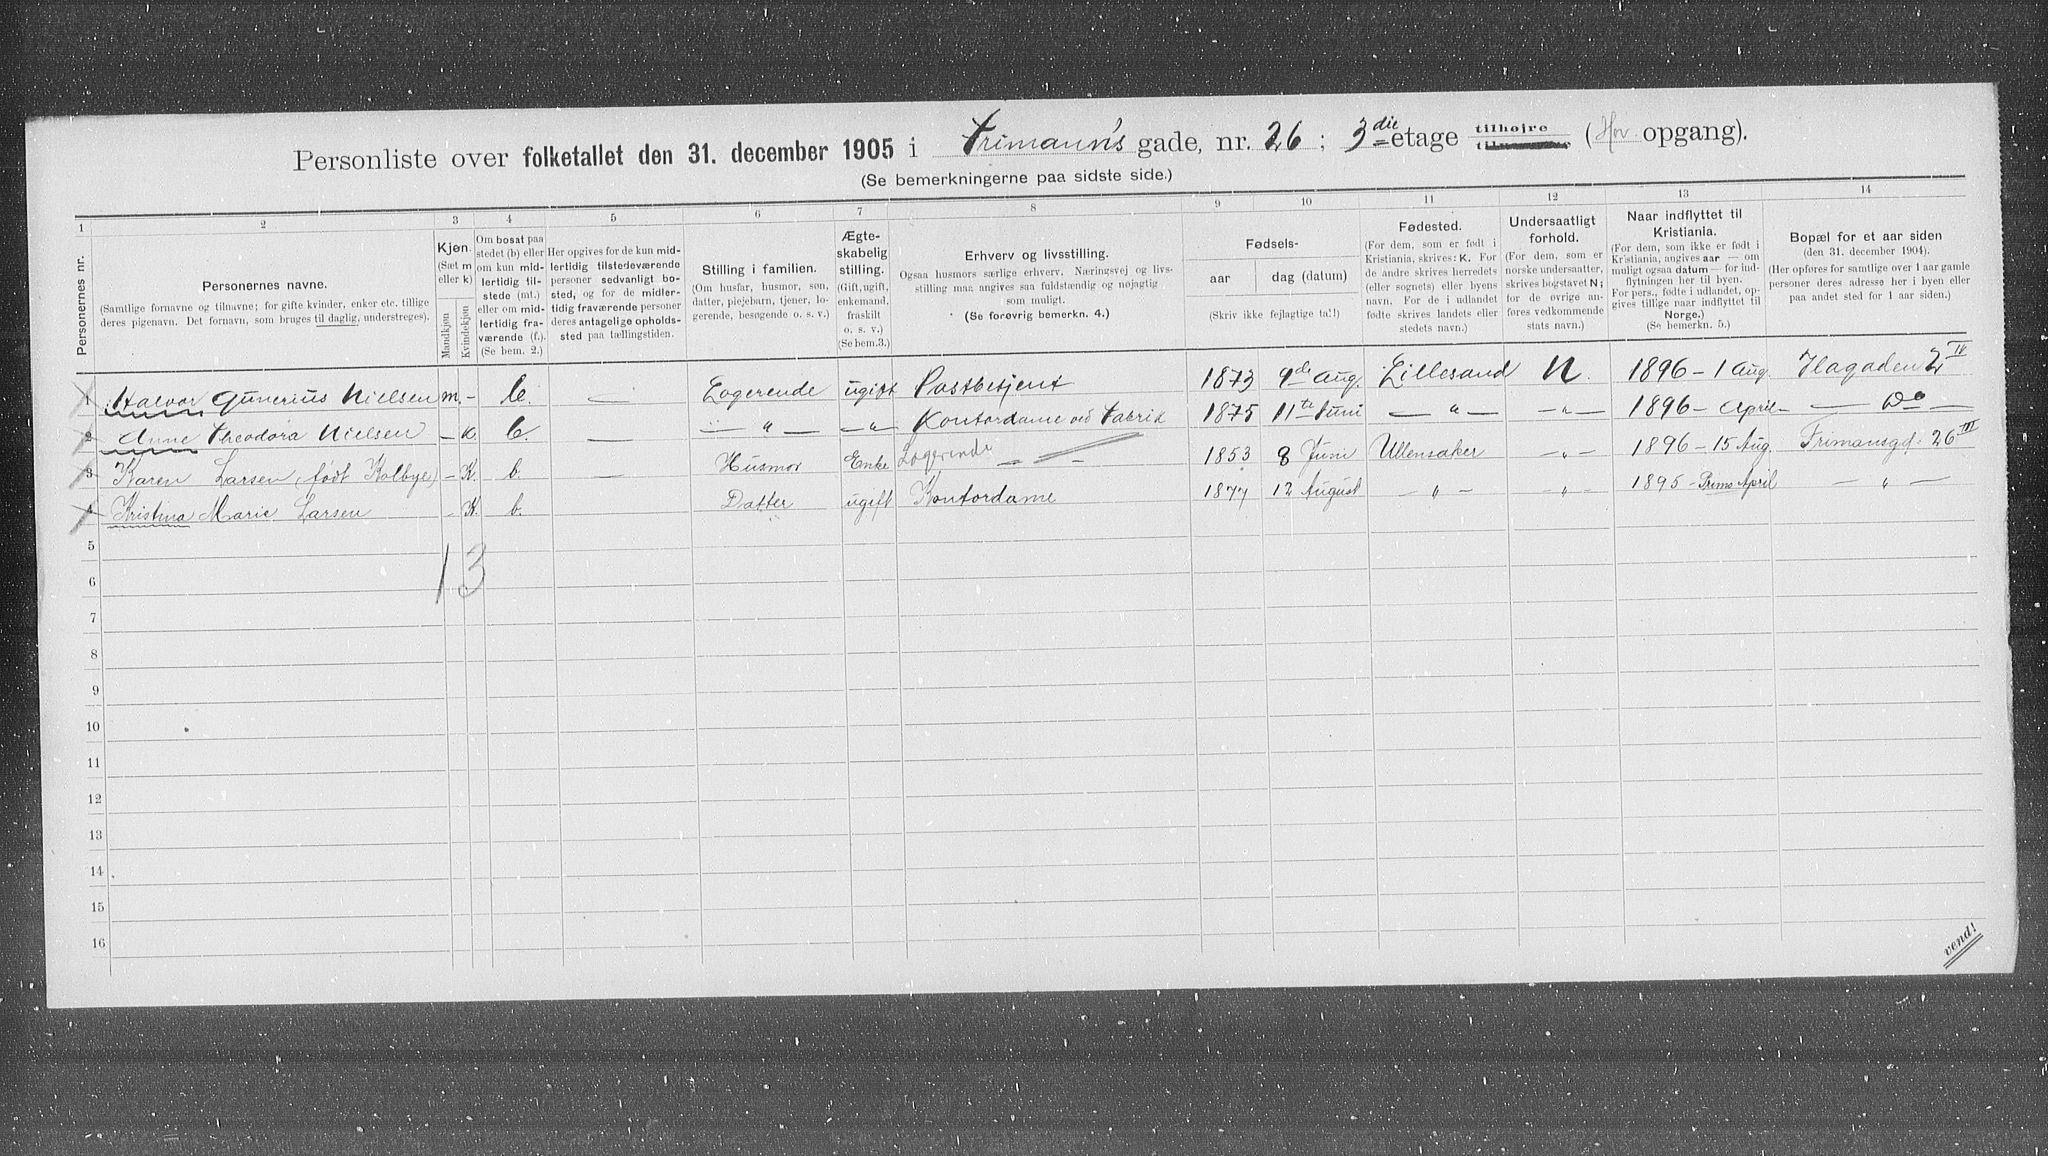 Personliste over folketallet den 31. december 1905 i Frimann's gade, nr. 26; 3die etage tilhøjre (Hov opgang).
(Se bemerkningerne paa sidste side.)
1 2 3 4 5 6 7 8 9 10 11 12 13 14
Personernes nr.
Personernes navne.
(Samtlige fornavne og tilnavne; for gifte kvinder, enker etc. tillige
deres pigenavn. Det fornavn, som bruges til daglig, understreges).
Kjøn.
(Sæt m
eller k)
Mandkjøn
Kvindekjøn
Om bosat paa
stedet (b) eller
om kun mid-
lertidig til-
stede (mt.)
eller om mid-
lertidig fra-
værende (f.).
(Se bem. 2.)
Her opgives for de kun mid-
lertidig tilstedeværende
personer sedvanligt bo-
sted, og for de midler-
tidig fraværende personer
deres antagelige opholds-
sted paa tællingstiden.
Stilling i familien.
(Om husfar, husmor, søn,
datter, plejebarn, tjener, lo-
gerende, besøgende o. s. v.)
Ægte-
skabelig
stilling.
(Gift, ugift,
enkemand,
fraskilt
o. s. v.)
(Se bem.3.)
Erhverv og livsstilling.
Ogsaa husmors særlige erhverv. Næringsvej og livs-
stilling maa angives saa fuldstændig og nøjagtig
som muligt.
(Se forøvrig bemerkn. 4.)
Fødsels-
aar
dag (datum)
(Skriv ikke fejlagtige ta!!)
Fødested.
(For dem, som er født i
Kristiania, skrives: K. For
de andre skrives herredets
(eller sognets) eller byens
navn. For de i udlandet
fødte skrives landets eller
stedets navn.)
Undersaatligt
forhold.
(For dem, som er
norske undersaatter,
skrives bogstavet N;
for de øvrige an-
føres vedkommende
stats navn.)
Naar indflyttet til
Kristiania.
(For dem, som ikke er født i
Kristiania, angives aar — om
muligt ogsaa datum — for ind-
flytningen her til byen.
For pers., fødte i udlandet, op-
gives tillige naar indflyttet til
Norge.)
(Se bemerkn. 5.)
Bopæl for et aar siden
(den 31. december 1904).
(Her opføres for samtlige over 1 aar gamle
personer deres adresse her i byen eller
paa andet sted for 1 aar siden.)
1 Halvor Gunerius Nielsen m. - b. — Logerende ugift Postbetjent 1873 9de Aug. Lillesand N. 1896 - 1 Aug. Ilagaden 2 IV
2 Anne Theodora Nielsen — K. b. — — " — — " — Kontordame ved Fabrik 1875 11te Juni — " — — " — 1896 - April - — Do —
3 Karen Larsen (født Kolbye) — K. b. — Husmor Enke Logerende — — 1853 8 Juni Ullensaker — " — 1896 - 15 Aug. Frimansgd. 26 III
4 Kristina Marie Larsen - K. b. Datter ugift Kontordame 1877 12 August — " — — " — 1895 - Primo April — " —
5
6
13
7
8
9
10
11
12
13
14
15
16
vend!